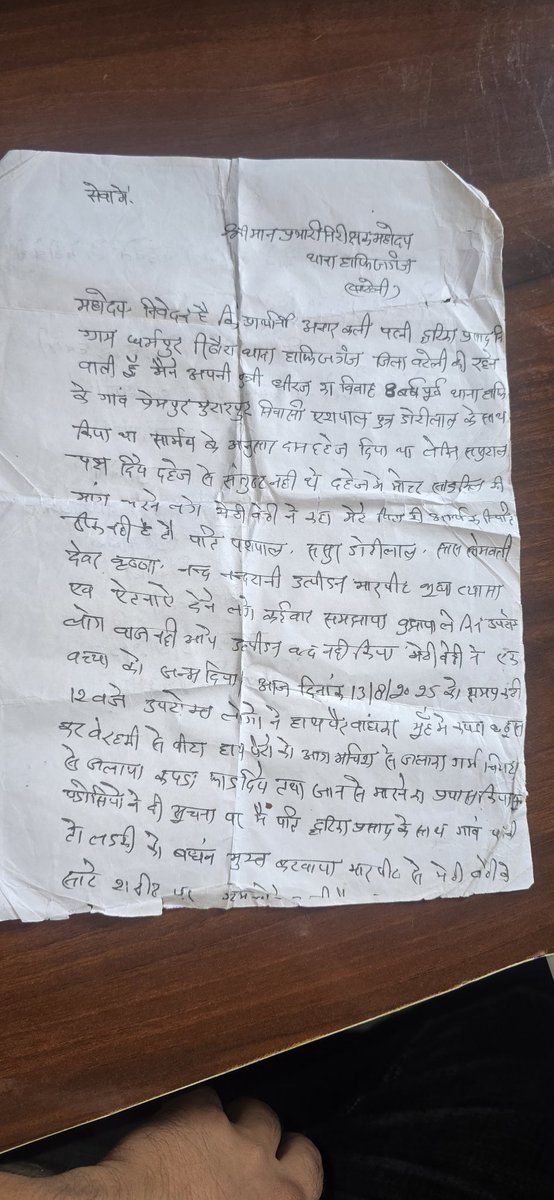 सेवा में,
श्रीमान प्रभारी निरीक्षक महोदय
थाना हाफिजगंज
(बरेली)
महोदय निवेदन है कि प्रार्थिनी अनार कली पत्नी हरिश प्रसाद
ग्राम धर्मपुर थाना हाफिजगंज जिला बरेली की रहने
वाली हूँ मैंने अपनी पुत्री धीरज का विवाह 8 वर्ष पूर्व थाना
के गांव प्रेमपुर मुरारपुर निवासी यशपाल पुत्र डोरीलाल के साथ
किया था के अनुसार दान दहेज दिया था लेकिन ससुराल
पक्ष दिये दहेज से संतुष्ट नही थे दहेज मे मोटर साइकिल की
मांग करने लगे मेरी बेटी ने कहा मेरे पिता की
ठीक नही है तो पति यशपाल, ससुर डोरीलाल, सास सोमवती
देवर कृष्णा, नन्द नन्दरानी उत्पीडन मारपीट भूखा प्यासा
एव देने लगे कईवार समझाया बुझाया लेकिन उपरोक्त
लोग बाज नही आये उत्पीडन बन्द नही किया मेरी बेटी ने एक
बच्चा को जन्म दिया आज दिनांक 13/8/2025 को समय करीब
12 बजे उपरोक्त लोगो ने हाथ पैर बांधकर मुँह मे कपडा
कर बेरहमी से पीटा हाथ पैरो को आग माचिस से जलाया गर्म चिमटा
से जलाया कपडा फाड दिये तथा जान से मारने का प्रयास किया
पडोसियो ने दी सूचना पर मै पति हरिश प्रसाद के साथ गांव
तो लडकी को बंधन मुक्त करवाया मारपीट से मेरी बेटी के
सारे शरीर पर